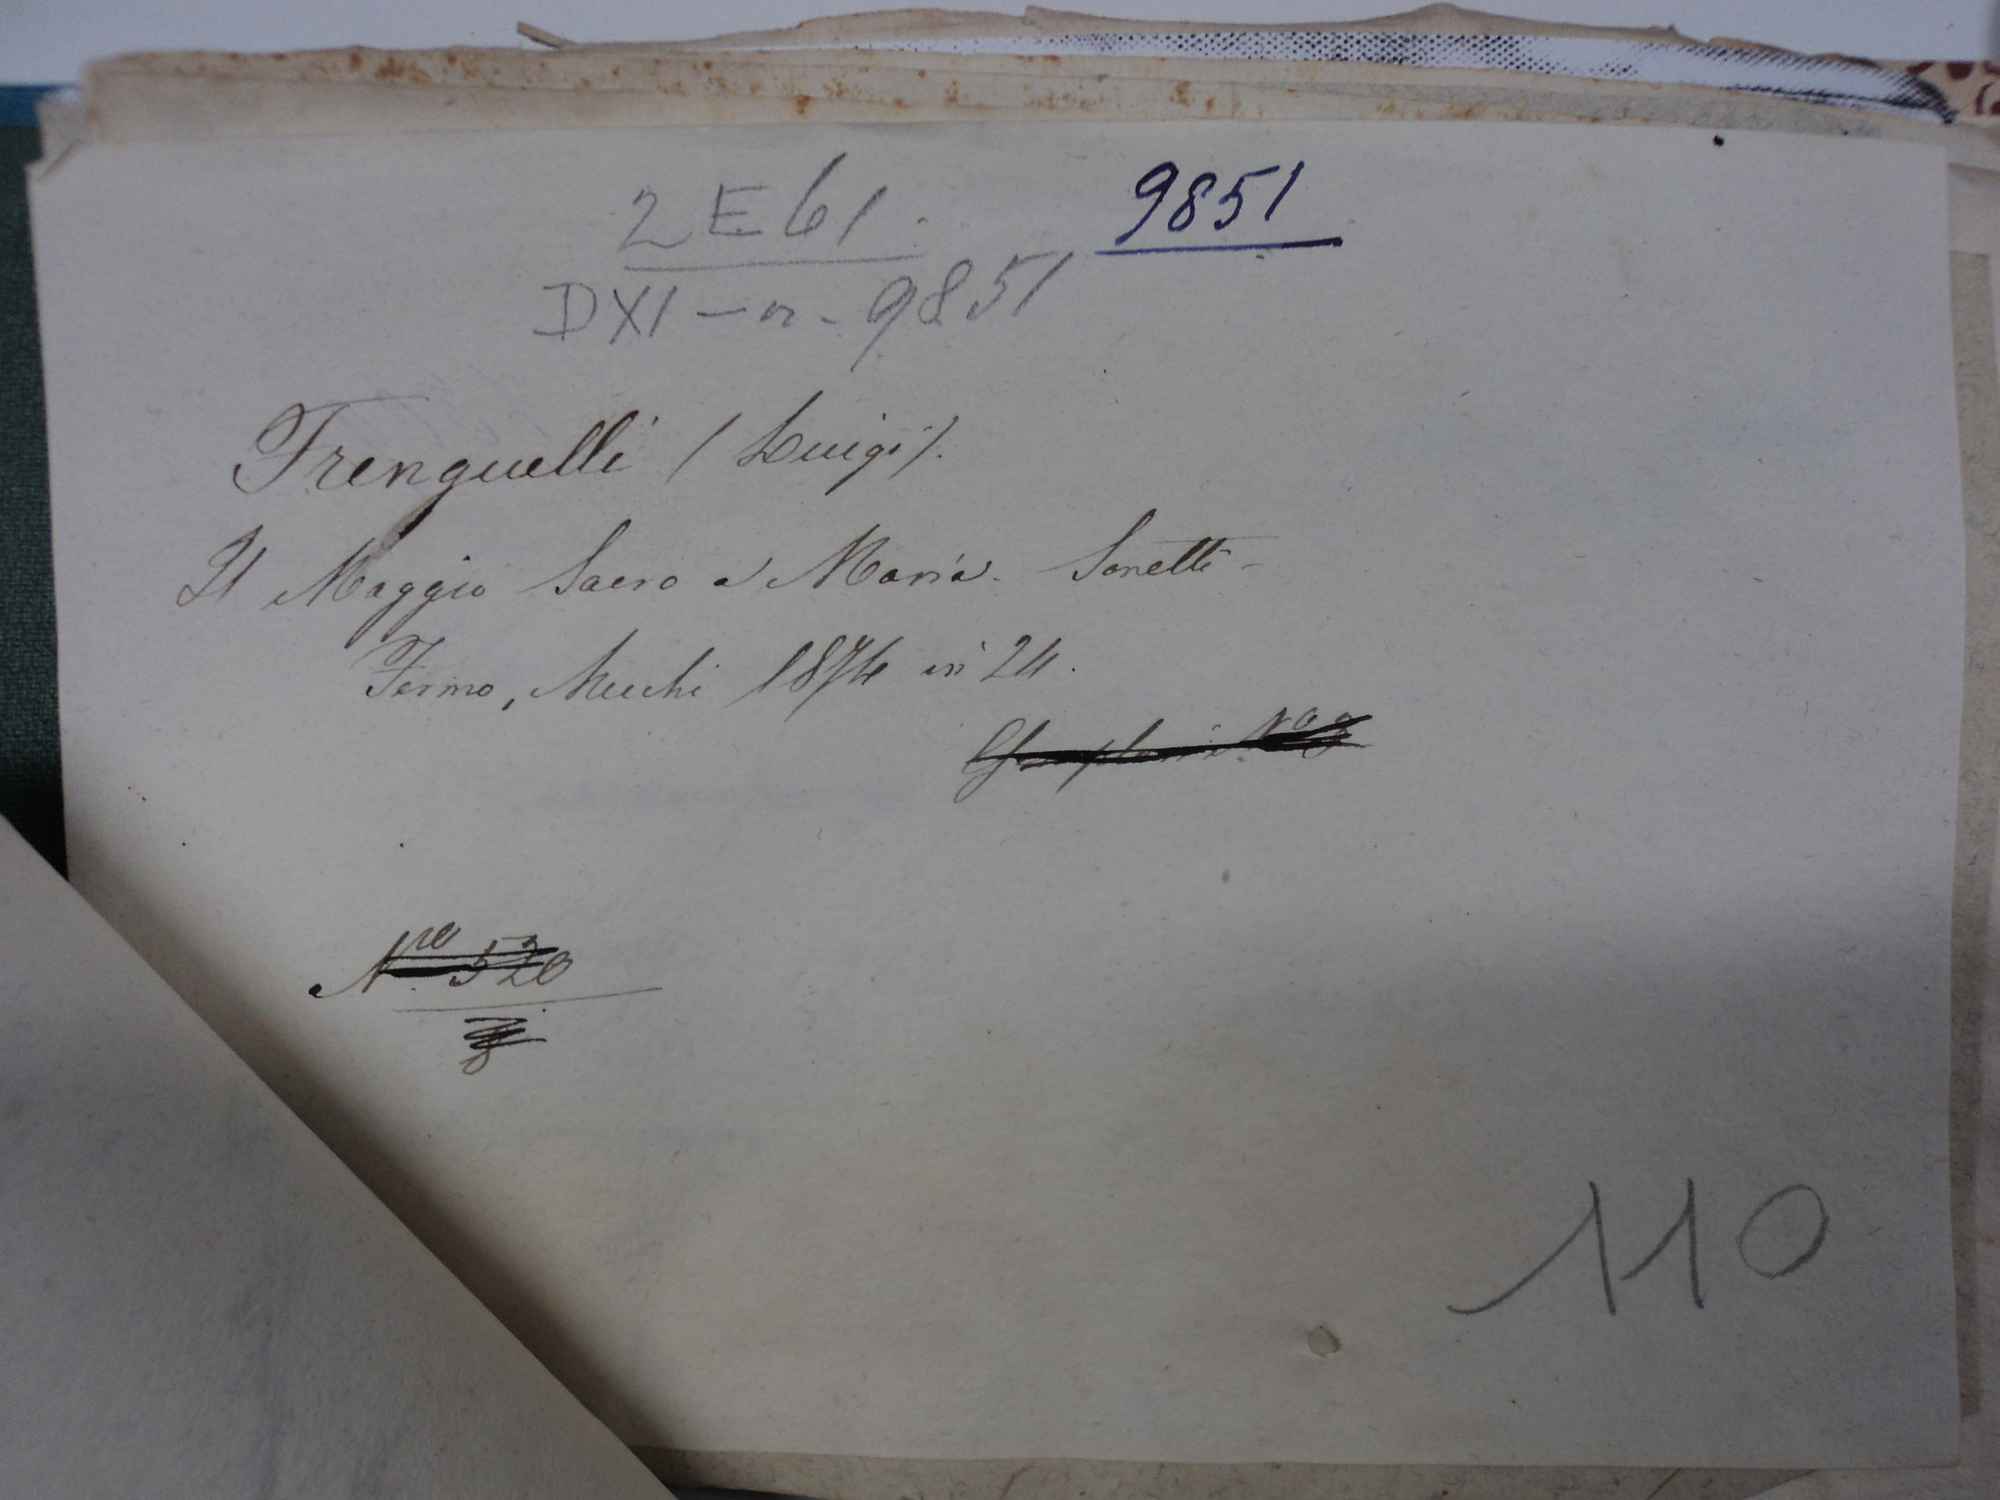 2 E 61.
9851
DXI - n. 9851
Frenguelli (Luigi).
Il Maggio Sacro a Maria. Sonetti -
Fermo, Mecchi 1874 in 24.
N.ro 520
110